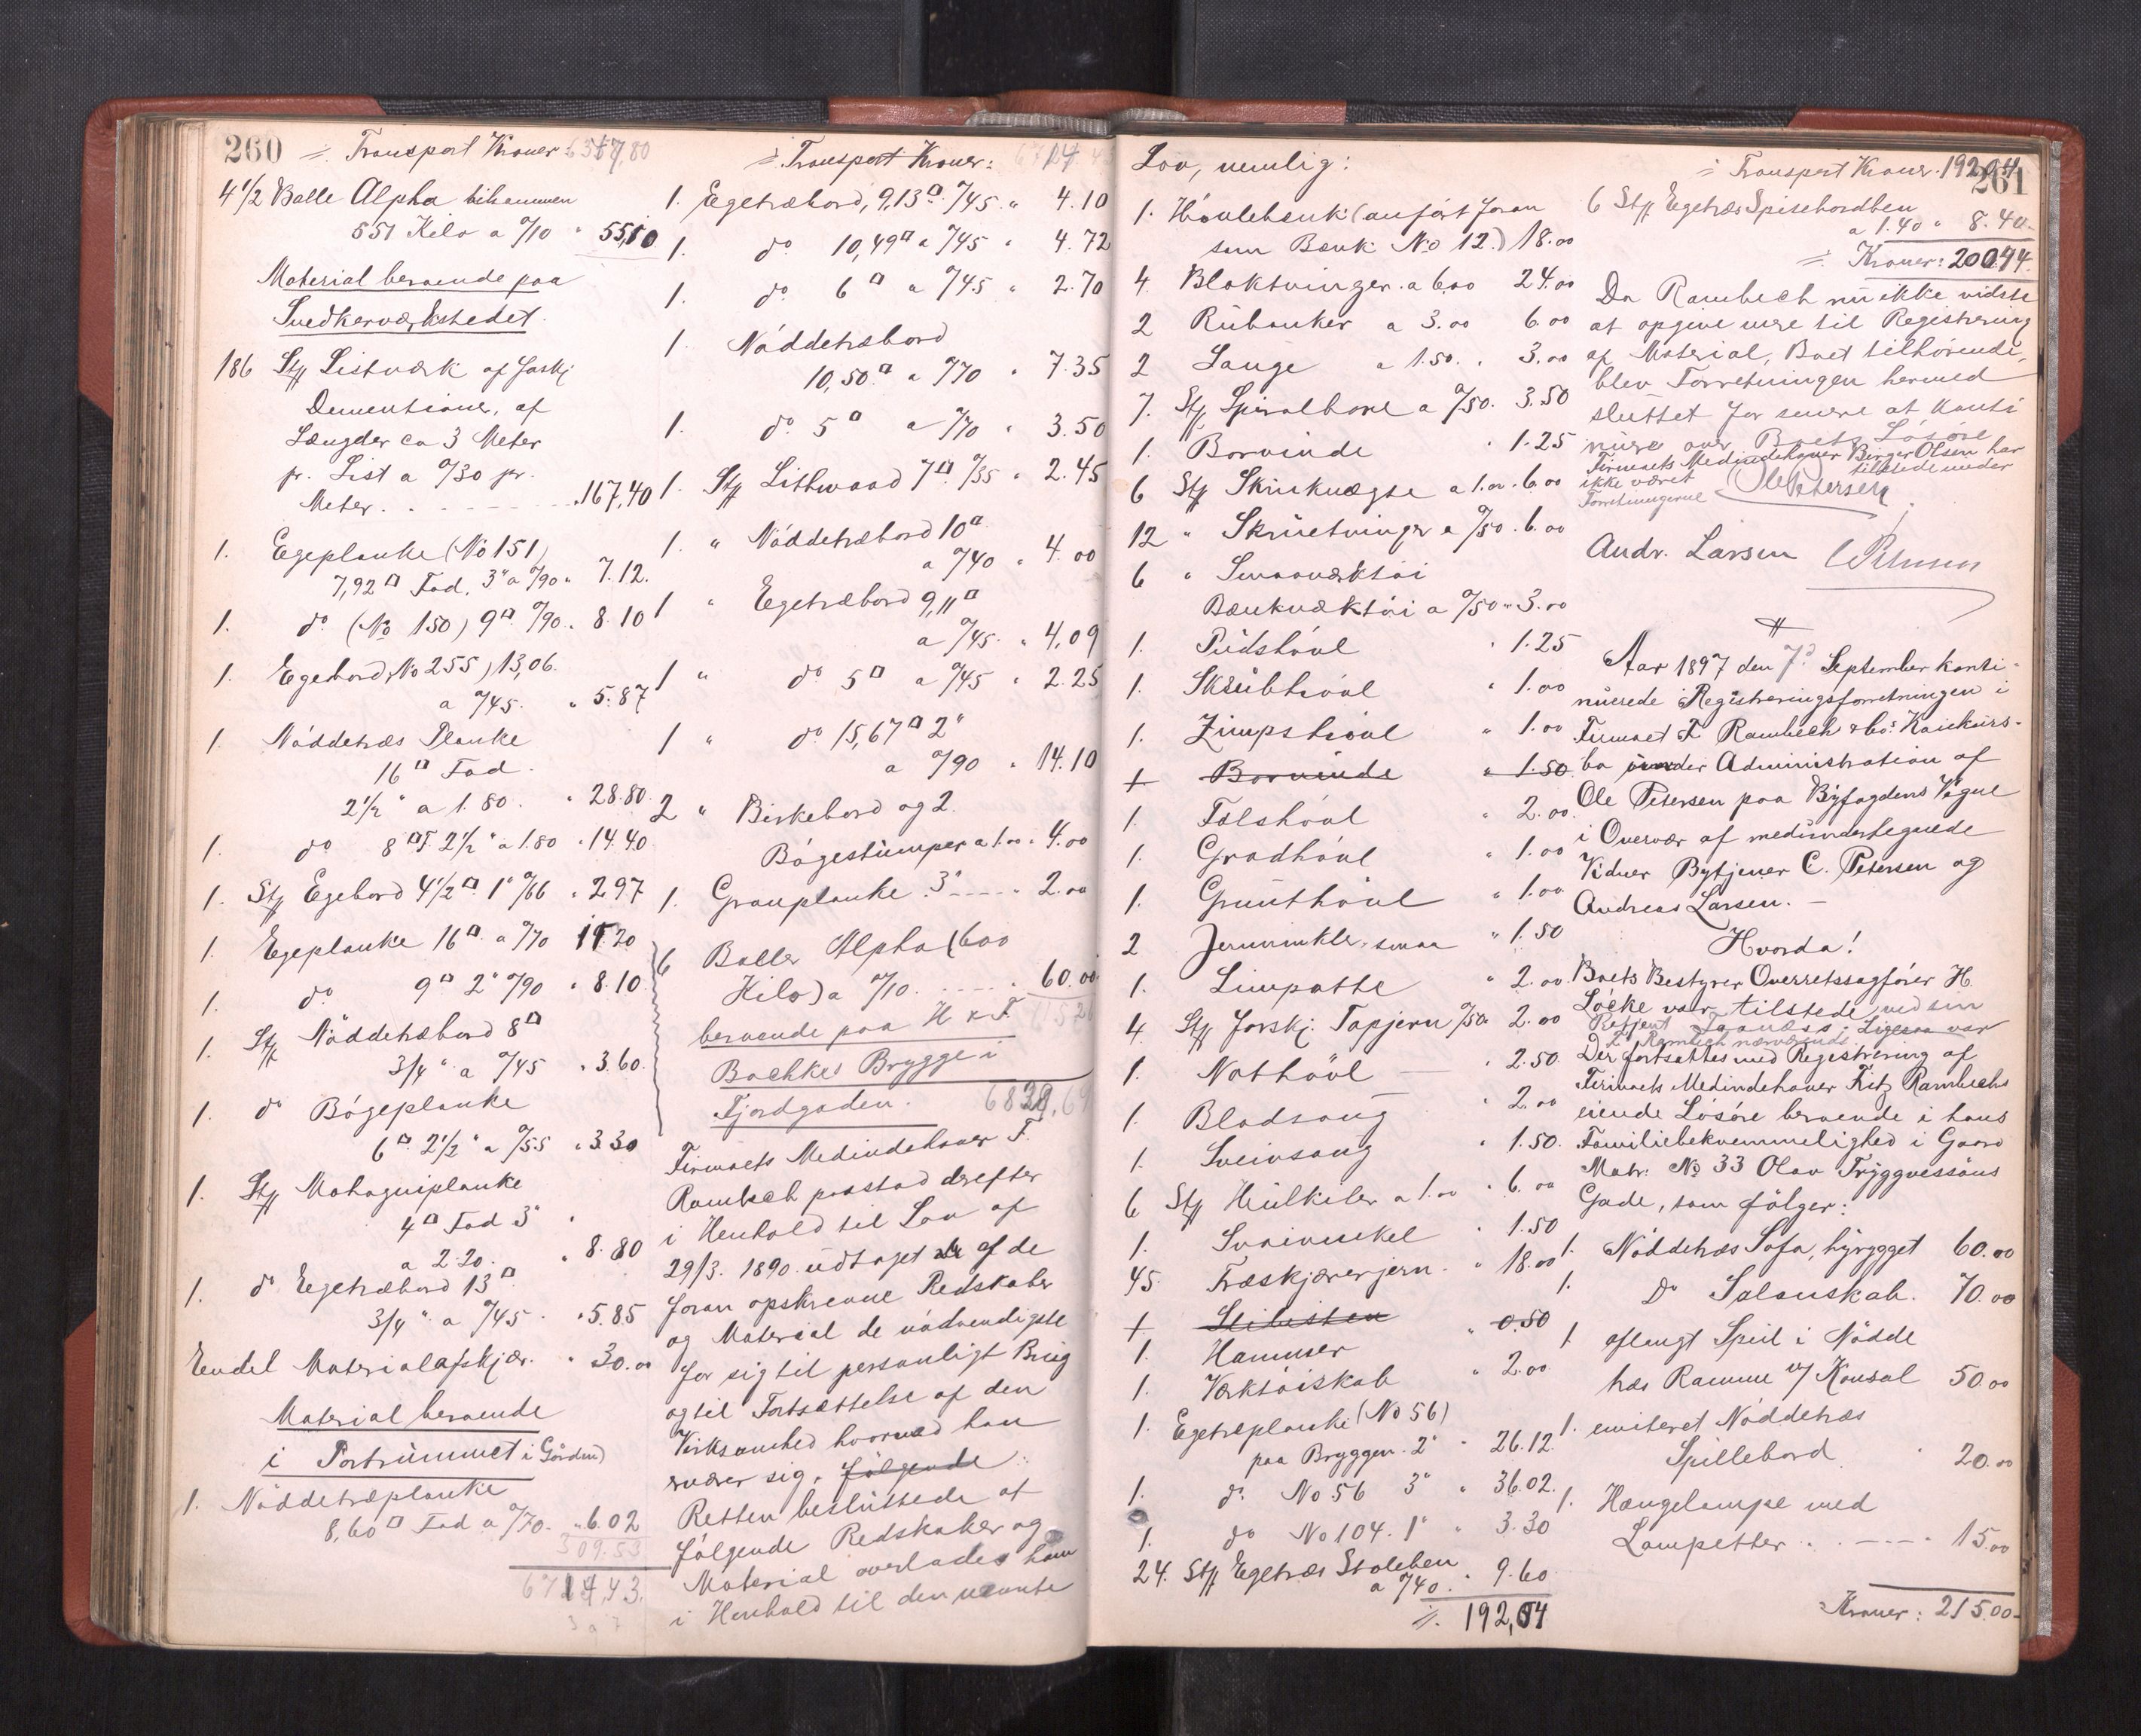 260
Transport Kroner 6517,80
4 1/2 Balle Alpha tilsammen
551 Kilo a °/10 " 55,10
Material beroende paa
Snedkerværkstedet.
186 Stk Listværk af forskj
Dementioner, af
Længder ca 3 Meter
pr. List a °/30 pr.
Meter . . . 167,40
1. Egeplanke (No 151)
7,92 □ Fod. 3" a °/90 " 7.12.
1. do (No 150) 9 □ °/90 " 8.10
1. Egebord, No 255, 13,06.
a °/45. " 5.87
1 Nøddetræs Planke
16 □ Fod.
2 1/2 " a 1.80. " 28.80.
1. do 8 □ F. 2 1/2 " a 1.80 " 14.40
1. Stk Egebord 4 1/2 □ 1" °/66 " 2.97
1. Egeplanke 16 □ a °/70 11.20
1. do 9 □ 2" °/90 " 8.10
1. Stk Nøddetræbord 8 □
3/4 " a °/45 " 3.60.
1. do Bøgeplanke
6 □ 2 1/2 " a °/55 " 3.30
1. Stk Mahogniplanke
4 □ Fod 3"
a 2.20. " 8.80
1. do Egetræbord 13 □
3/4 " a °/45 " 5.85
Endel Materialafskjær. " 30.00
Material beroende
i Portrummet i Gården)
1. Nøddetræplanke
8,60 □ Fod a °/70. " 6.02
309.53
6714,43.
Transport Kroner:
1. Egetræbord, 9,13 □ °/45 " 4.10
1. do 10,49 □ a °/45 " 4.72
1. do 6 □ a °/45 " 2.70
1. Nøddetræbord
10,50 □ a °/70 " 7.35
1. do 5 □ a °/70 " 3.50
1. Stk Lithwood 7 □ °/35 " 2.45
1. " Nøddetræbord 10 □
a °/40 " 4.00
1 " Egetræbord 9,11 □
a °/45 " 4,09
1 " do 5 □ a °/45 " 2.25
1 " do 15,67 □ 2"
a °/90 " 14.10
2 " Birkebord og 2
Bøgestumper a 1.00 " 4.00
1. Granplanke 3" " 2.00
6 Baller Alpha (600
Kilo) a °/10 . . . 60.00
beroende paa H & F.
Bachkes Brygge i
Fjordgaden.
Firmaets Medindehaver F.
Rambech paastod derefter
i Henhold til Lov af
29/3. 1890 udtaget af de
foran opskrevne Redskaber
og Material de nødvendigste
for sig til personligt Brug
og til Fortsættelse af den
Virksomhed hvorved han
nærer sig. følgende:
Retten besluttede at
følgende Redskaber og
Material overlades ham
i Henhold til den nævnte
Lov, nemlig:
1. Høvlebænk (anført foran
som Bænk No 12.) 18.00
4. Bloktvinger a 6.00 24.00
2 Rubanker a 3.00 6.00
2 Lange a 1.50. " 3.00
7. Stk Spiralbore a °/50. 3.50
1. Borvinde " 1.25
6 Stk Skruknægte a 1.00 " 6.00
12 " Skruetvinger a °/50 " 6.00
6 " Smaaværktøi
Bænkværktøi a °/50 " 3.00
1. Pudshøvl " 1.25
1. Skrubhøvl " 1.00
1. Zimpshøvl " 1.00
+ Borvinde " 1.50
1. Falshøvl " 2.00
1. Gradhøvl " 1.00
1. Grunthøvl " 1.00
2 Jernvinkler, smaa " 1.50
1. Limpotte " 2.00
4 Stk forskj. Tapjern °/50 2.00
1. Nothøvl " 2.50
1. Bladsaug " 2.00
1. Sveivsaug " 1.50.
6 Stk Hulkiler a 1.00 " 6.00
1. Svaivinkel " 1.50
45. Træskjærerjern " 18.00
+ Slibesten " 0.50
1. Hammer
1. Værktøiskab " 2.00
1. Egetræplanke (No 56)
paa Bryggen 2" " 26.12.
1. do No 56 3" " 36.02.
1. do No 104. 1" " 3.30
24. Stk Egetræs Stoleben
a °/40. " 9.60
192,04
261
Transport Kroner. 192,04
6 Stk Egetræs Spisebordben
a 1.40 " 8.40
Kroner: 200.44
Da Rambech nu ikke vidste
at opgive mere til Registrering
af Material, Boet tilhørende,
blev Forretningen hermed
sluttet for senere at konti
nuere over Boets Løsøre
Firmaets Medindehaver Birger Olsen har
ikke været tilstede under
Forretningerne
Ole Petersen
Andr. Larsen C Petersen
Aar 1897 den 7d September konti-
nuerede Registreringsforretningen i
Firmaet F. Rambech & Co. Konkurs-
bo under Administration af
Ole Petersen paa Byfogdens Vegne
i Overvær af medundertegnede
Vidner Bytjener C. Petersen og
Andreas Larsen. -
Hvorda!
Boets Bestyrer Overretssagfører H.
Löcke var tilstede ved sin
Ligesaa var
F. Rambech nærværende.
Der fortsattes med Registrering af
Firmaets Medindehaver Fritz Rambechs
eiende Løsøre beroende i hans
Familiebekvemmelighed i Gaard
Matr. No 33 Olav Tryggvessøns
Gade, som følger:
1. Nøddetræs Sofa, høirygget 60.00
1. Do Salonskab. 70.00
1. aflangt Speil i Nødde
træs Ramme m/ Konsol 50.00
1. emiteret Nøddetræs
Spillebord " 20.00
1. Hængelampe med
Lampetter . . . . 15.00
Kroner: 215.00